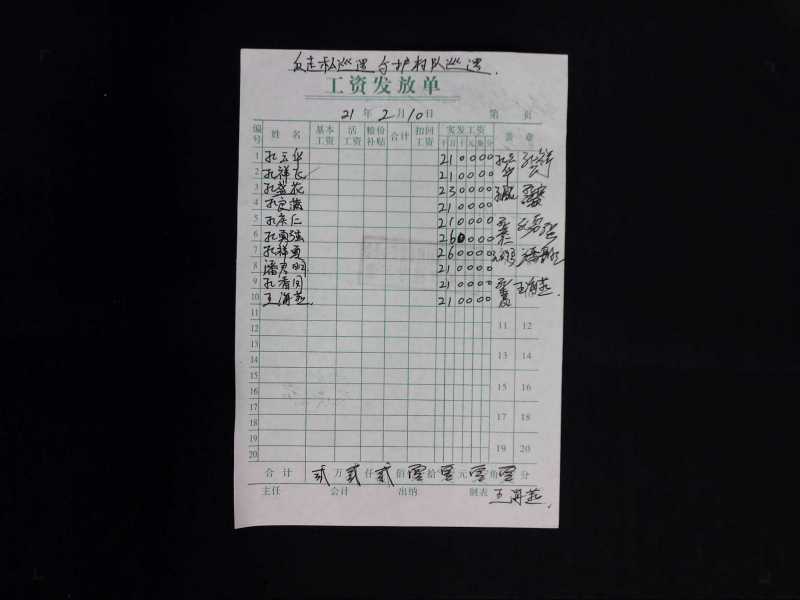 反走私巡逻与护村队巡逻
工资发放单
21年2月10日 第 页
编号 姓名 基本工资 活工资 粮价补贴 合计 扣回工资 实发工资 千百十元角分 盖章
1 孔云华 210000 孔云华 孔祥飞
2 孔祥飞 210000
3 230000
4 孔定 210000
5 孔庆仁 210000
6 孔勇强 260000 孔勇强
7 孔祥勇 260000
8 潘君明 210000
9 孔香 210000 王海燕
10 王海燕 210000 10
11 11 12
12
13 13 14
14
15 15 16
16
17 17 18
18
19 19 20
20
合计 贰万贰仟贰佰零拾零元零角零分
主任 会计 出纳 制表 王海燕